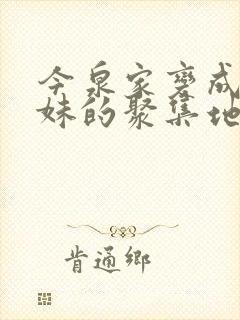 今泉家变成
妹的聚集地
肯通鄉